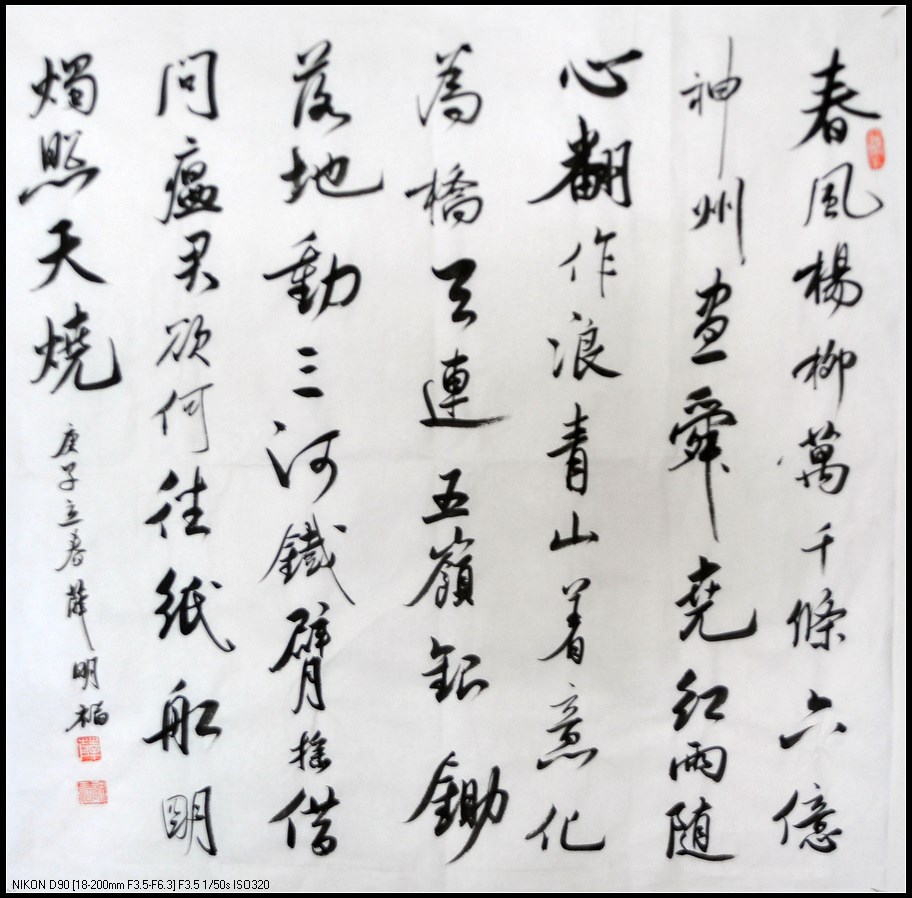 春風楊柳萬千條六億
神州盡舜堯红雨随
心翻作浪青山着意化
為橋天連五嶺銀鋤
落地動三河鐵臂摇借
問瘟君欲何往紙船明
燭照天燒
庚子立春薛明
NIKON D90 [18-200mm F3.5-F6.3] F3.5 1/50s ISO320